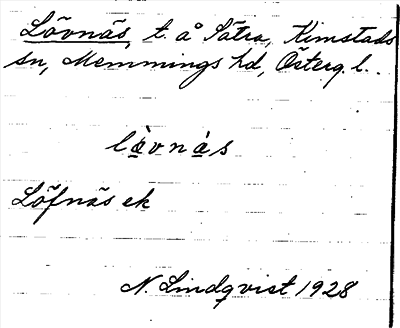 Lövnäs, t. å Sätra, Kimstads
sn, Memmings hd, Österg. l.
lövnäs
Löfnäs ek
N. Lindqvist 1928